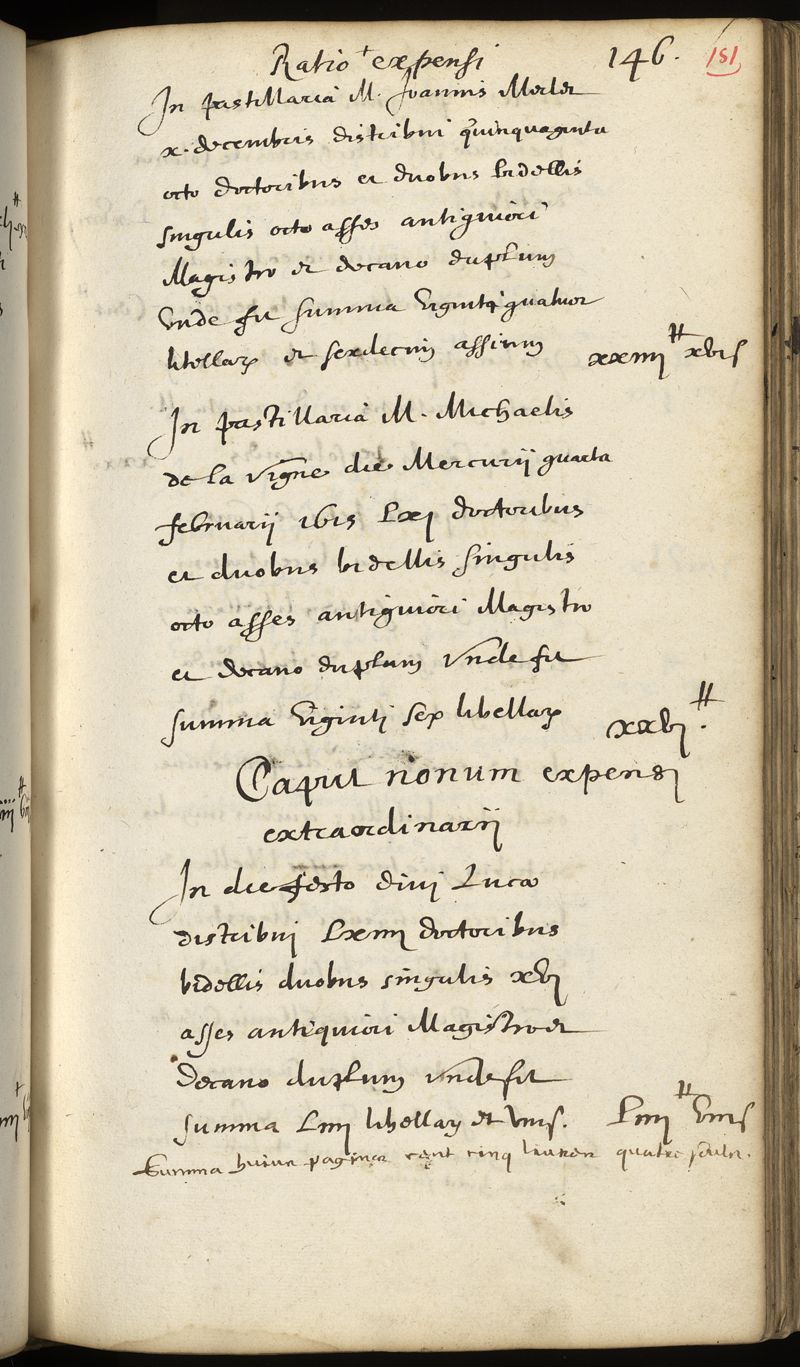 Ratio + expensi 146. 181
In pastillaria M. Joannis Merlet
x. decembris distribui quinquaginta
octo doctoribus et duobus bidellis
singulis octo asses antiquiori
Magistro et decano duplum
Unde fit summa viginti quatuor
libellarꝝ et sexdecim assium xxiiii ₶ xvi s
In pastillaria M. Michaelis
de la vigne die Mercurij quarta
februarij 1615 Lxi doctoribus
et duobus bidellis singulis
octo asses antiquiori Magistro
et decano duplum Unde fit
summa viginti sex libellarꝝ xxvi ₶.
Caput nonum expensi
extraordinarij
In die festo divi Lucæ
distribui Lxiiii doctoribus
bidellis duobus singulis xvi
asses antiquiori Magistro et
decano duplum unde fit
summa Liiii libellarꝝ et viiis. Liiii ₶ viiis
Summa huius paginæ cent cinq livres quatre soulz.